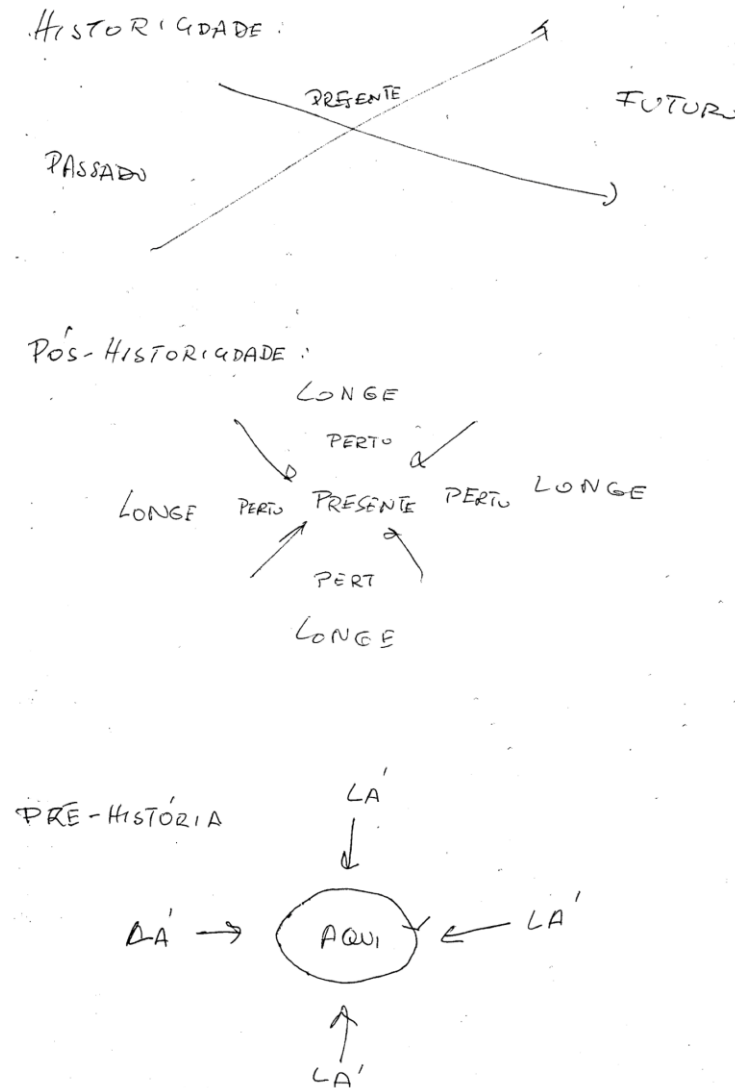 HISTORICIDADE:
PRESENTE
FUTURO
PASSADO
PÓS-HISTORICIDADE:
LONGE
PERTO
LONGE PERTO PRESENTE PERTO LONGE
PERT
LONGE
PRÉ-HISTÓRIA
LÁ
LÁ AQUI LÁ
LÁ